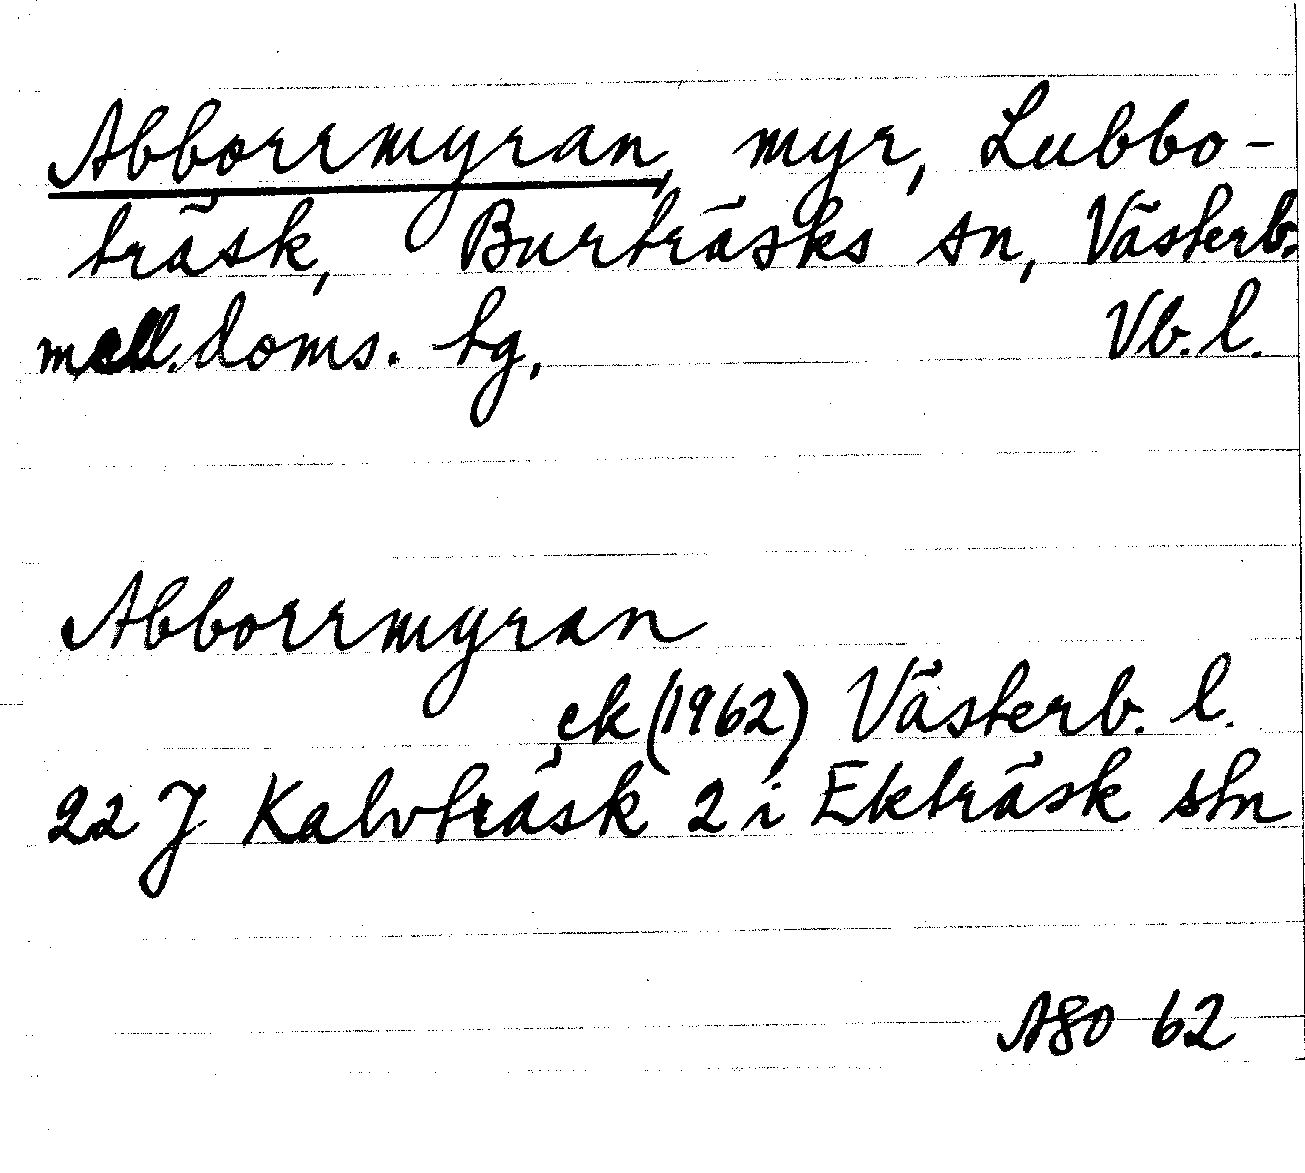 Abborrmyran, myr, Lubbo-
träsk, Burträsks sn, Västerb.
mell. doms. hg, Vb. l.
Abborrmyran
ek (1962) Västerb. l.
22 J Kalvträsk 2 i Ekträsk stn
ASO 62